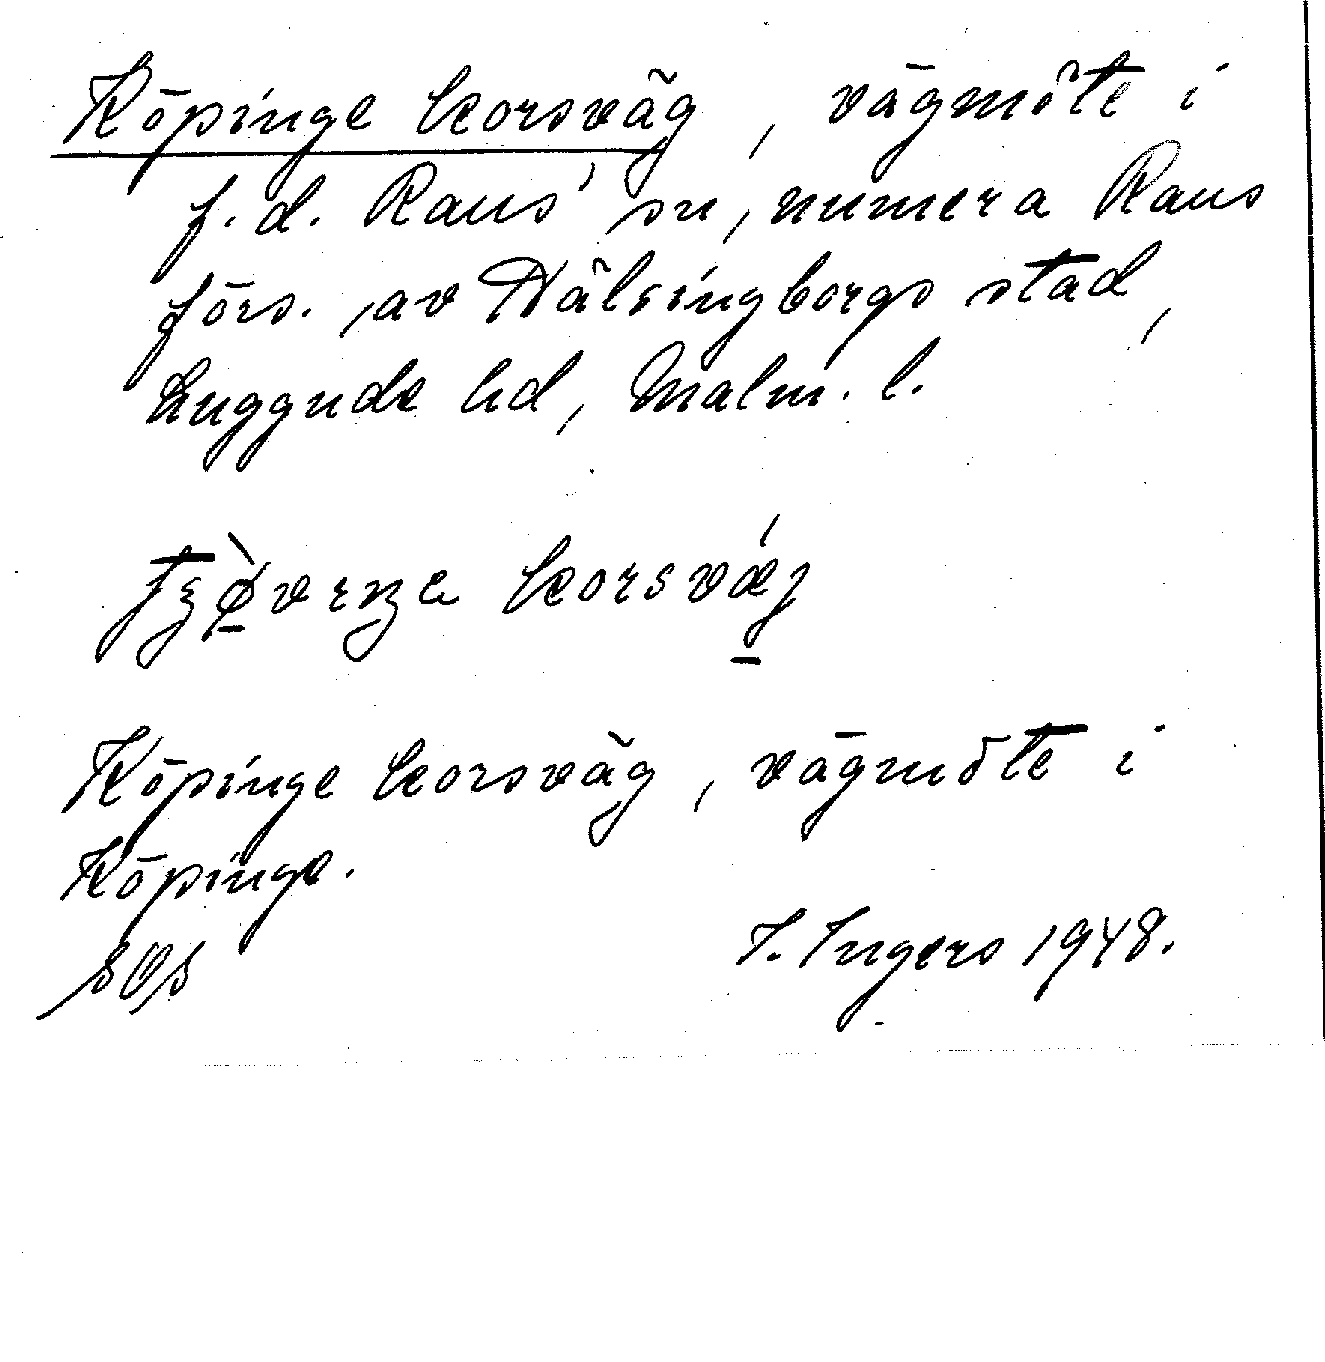 Köpinge korsväg, vägmöte i
f.d. Raus sn, numera Raus
förs. av Hälsingborgs stad,
Luggude hd, Malm. l.
korsvæj
Köpinge korsväg, vägmöte i
Köpinge.
I. Ingers 1948.